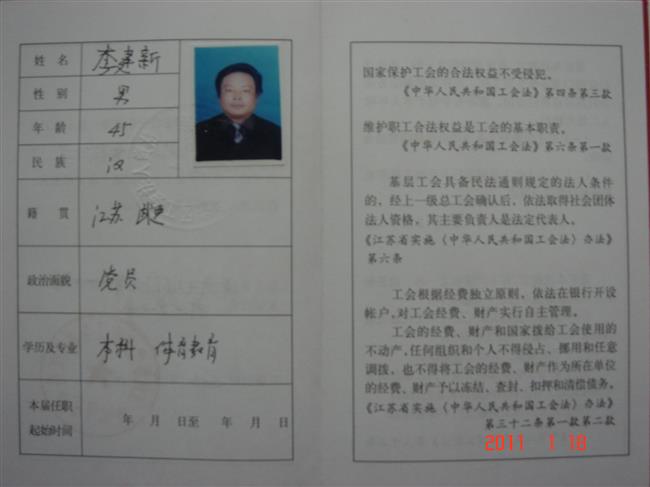 姓名 李建新
性别 男
年龄 45
民族 汉
籍贯 江苏
政治面貌 党员
学历及专业 本科 体育教育
本届任职
起始时间
年 月 日至 年 月 日
国家保护工会的合法权益不受侵犯。
《中华人民共和国工会法》第四条第三款
维护职工合法权益是工会的基本职责。
《中华人民共和国工会法》第六条第一款
基层工会具备民法通则规定的法人条件
的，经上一级总工会确认后，依法取得社会团体
法人资格，其主要负责人是法定代表人。
《江苏省实施〈中华人民共和国工会法〉办法》
第六条
工会根据经费独立原则，依法在银行开设
帐户，对工会经费、财产实行自主管理。
工会的经费、财产和国家拨给工会使用的
不动产，任何组织和个人不得侵占、挪用和任意
调拨，也不得将工会的经费、财产作为所在单位
的经费、财产予以冻结、查封、扣押和清偿债务。
《江苏省实施〈中华人民共和国工会法〉办法》
第三十二条第一款第二款
2011 1 18